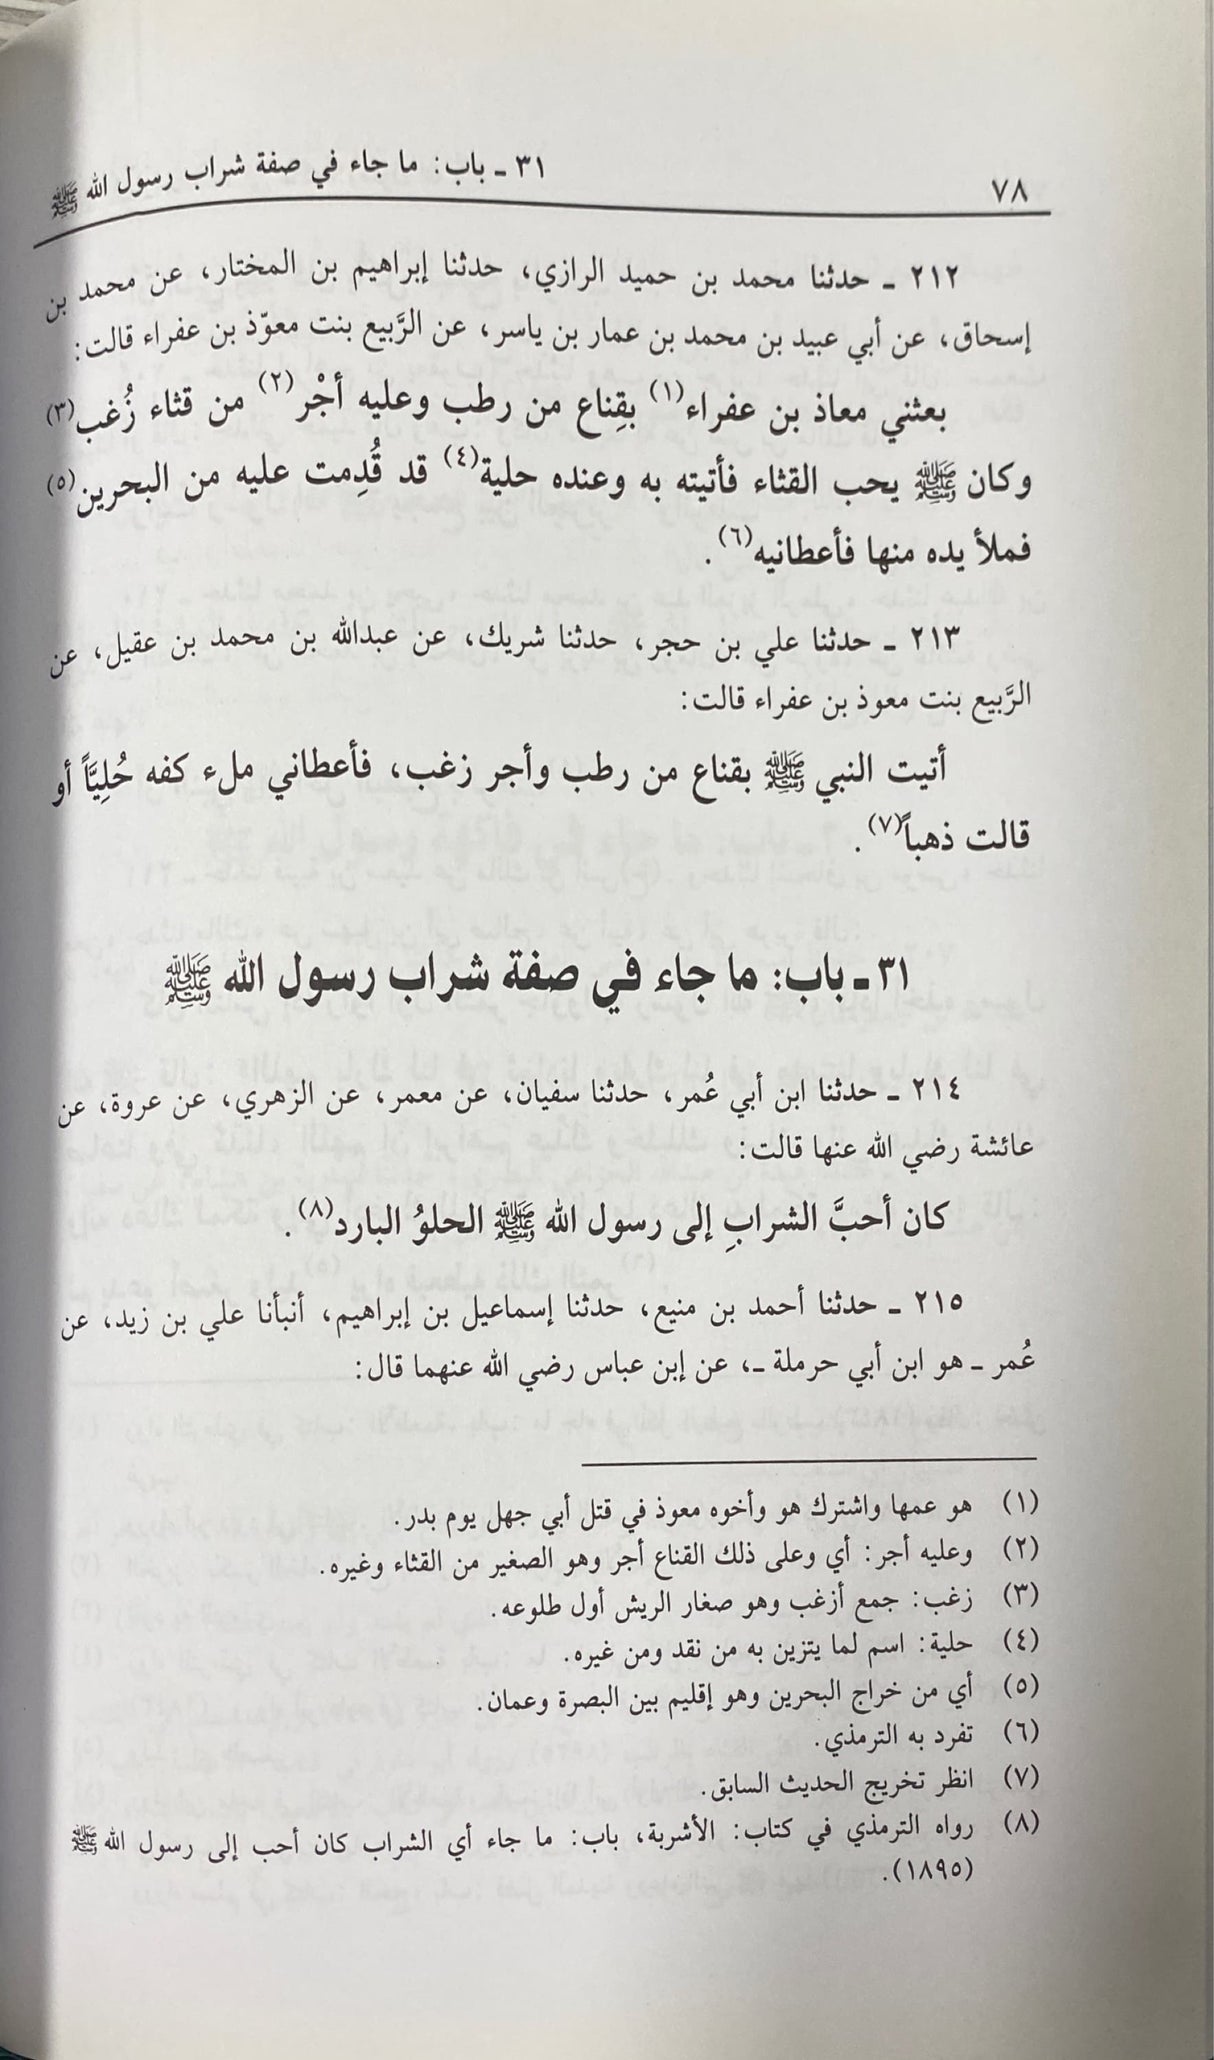 ٧٨
٣١ ـ باب: ما جاء في صفة شراب رسول الله ﷺ
٢١٢ ـ حدثنا محمد بن حميد الرازي، حدثنا إبراهيم بن المختار، عن محمد بن
إسحاق، عن أبي عبيد بن محمد بن عمار بن ياسر، عن الرَّبيع بنت معوّذ بن عفراء قالت:
بعثني معاذ بن عفراء(١) بقِناع من رطب وعليه أجْر(٢) من قثاء زُغب(٣)
وكان ﷺ يحب القثاء فأتيته به وعنده حلية(٤) قد قُدِمت عليه من البحرين(٥)
فملأ يده منها فأعطانيه(٦).
٢١٣ ـ حدثنا علي بن حجر، حدثنا شريك، عن عبدالله بن محمد بن عقيل، عن
الرَّبيع بنت معوذ بن عفراء قالت:
أتيت النبي ﷺ بقناع من رطب وأجر زغب، فأعطاني ملء كفه حُلِيَّاً أو
قالت ذهباً(٧).
٣١ ـ باب: ما جاء في صفة شراب رسول الله ﷺ
٢١٤ ـ حدثنا ابن أبي عُمر، حدثنا سفيان، عن معمر، عن الزهري، عن عروة، عن
عائشة رضي الله عنها قالت:
كان أحبَّ الشرابِ إلى رسول الله ﷺ الحلوُ البارد(٨).
٢١٥ ـ حدثنا أحمد بن منيع، حدثنا إسماعيل بن إبراهيم، أنبأنا علي بن زيد، عن
عُمر ـ هو ابن أبي حرملة ـ، عن إبن عباس رضي الله عنهما قال:
(١) هو عمها واشترك هو وأخوه معوذ في قتل أبي جهل يوم بدر.
(٢) وعليه أجر: أي وعلى ذلك القناع أجر وهو الصغير من القثاء وغيره.
(٣) زغب: جمع أزغب وهو صغار الريش أول طلوعه.
(٤) حلية: اسم لما يتزين به من نقد ومن غيره.
(٥) أي من خراج البحرين وهو إقليم بين البصرة وعمان.
(٦) تفرد به الترمذي.
(٧) انظر تخريج الحديث السابق.
(٨) رواه الترمذي في كتاب: الأشربة، باب: ما جاء أي الشراب كان أحب إلى رسول الله ﷺ
(١٨٩٥).